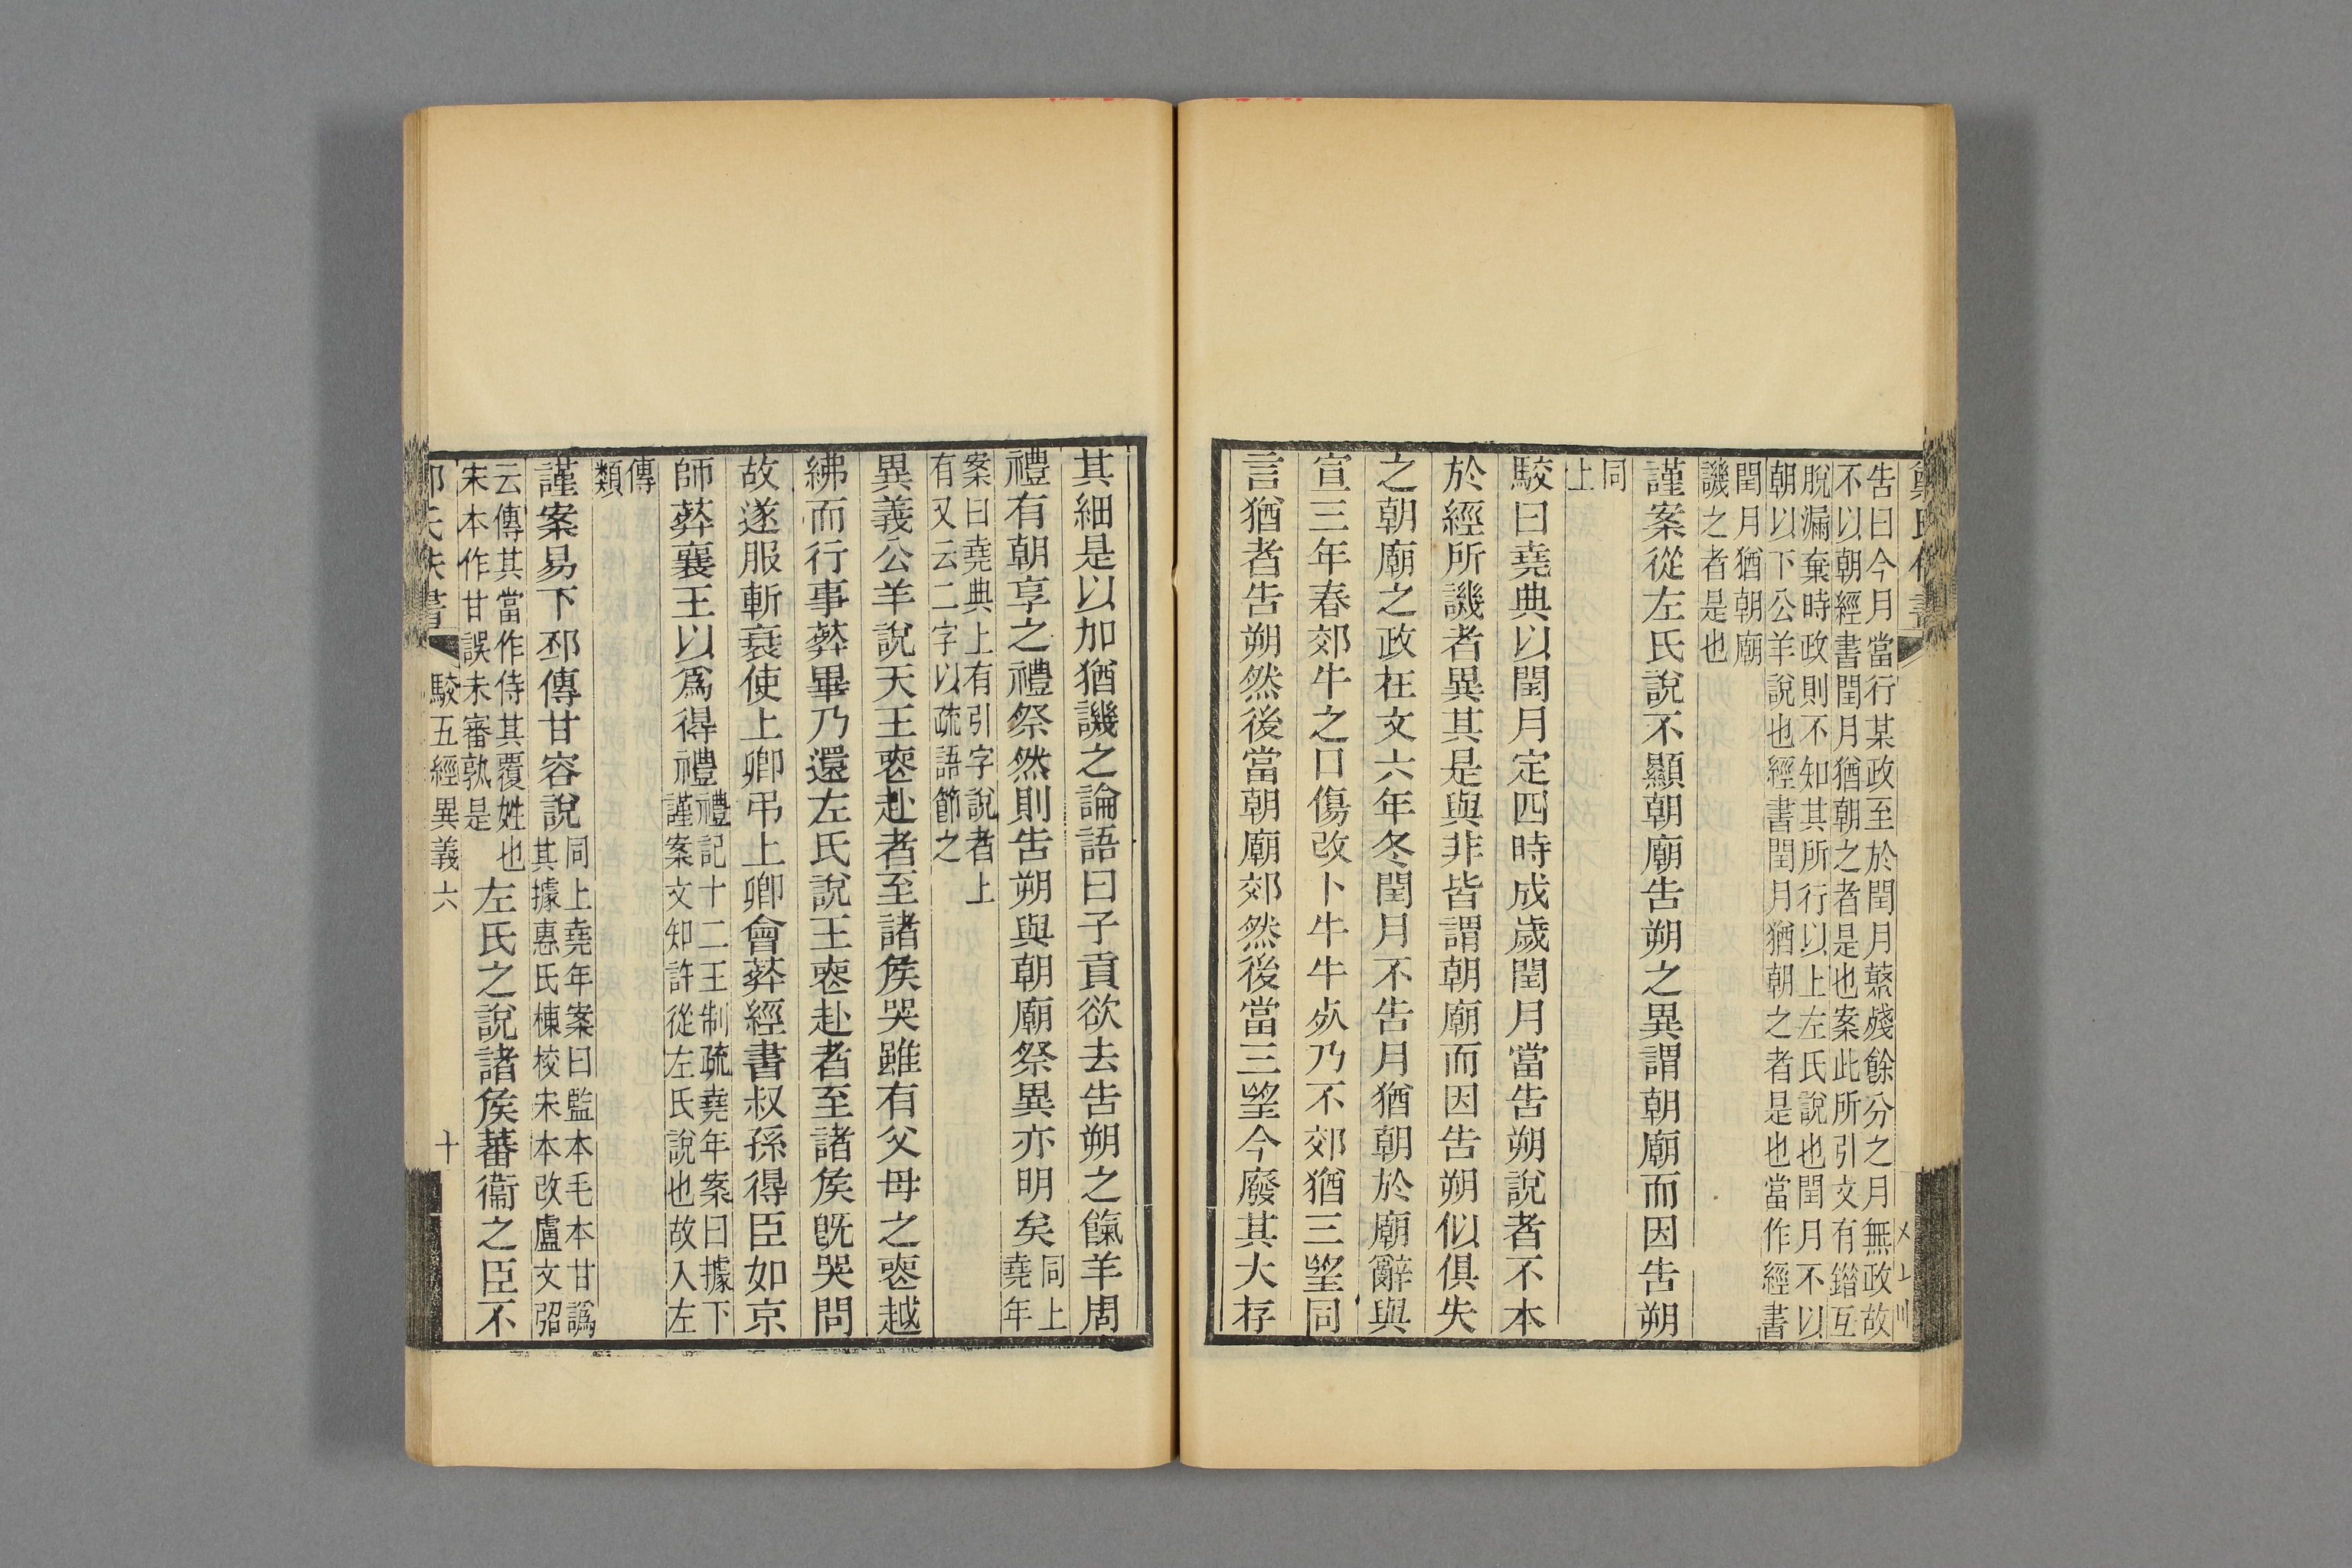 告曰今月當行某政至於閏月蘩㱚餘分之月無政故
不以朝經書閏月猶朝之者是也案此所引文有鐕互
脫漏棄時政則不知其所行以上左氏說也閏月不以
朝以下公羊說也經書閏月猶朝之者是也當作經書
閏月猶朝廟
譏之者是也
謹案從左氏說不顯朝廟告朔之異謂朝廟而因告朔
同
上
駮曰堯典以閏月定四時成歲閏月當告朔說者不本
於經所譏者異其是與非皆謂朝廟而因告朔似俱失
之朝廟之政在文六年冬閏月不告月猶朝於廟辭與
宣三年春郊牛之口傷改卜牛牛㱙乃不郊猶三朢同
言猶者告朔然後當朝廟郊然後當三朢今廢其大存
其細是以加猶譏之論語曰子貢欲去告朔之餼羊周
禮有朝享之禮祭然則告朔與朝廟祭異亦明矣同上
堯年
案曰堯典上有引字說者上
有又云二字以疏語節之
異義公羊說天王喪赴者至諸矦哭雖有父母之喪越
紼而行事葬畢乃還左氏說王喪赴者至諸矦旣哭問
故遂服斬衰使上卿弔上卿會葬經書叔孫得臣如京
師葬襄王以爲得禮禮記十二王制疏堯年案曰據下
謹案文知許從左氏說也故入左
傳
類
謹案易下邳傳甘容說同上堯年案曰監本毛本甘譌
其據惠氏棟校宋本改盧文弨
云傳其當作侍其覆姓也
宋本作甘誤未審孰是
左氏之說諸矦蕃衞之臣不
駮五經異義六
十